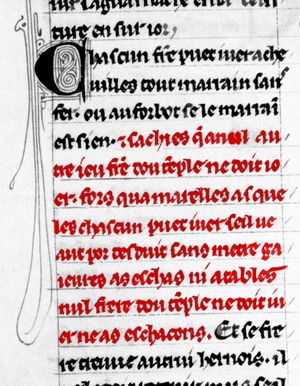 ture en sur ior,
Chascun frere puet iuer a che
uilles tout mairrain sanz
fer. ou au forbot se le mairrain
est sien. & sachies q̃ a nul au
tre ieu frere dou tẽple ne doit io
er. fors qua marelles as que
les chascun puet iuer seil ue
aut por desduit sans metre ga
ieures as eschas ni a tables
nul frere dou tẽple ne doit iu
er ne as eschacons. Et se frẽ
treuue autrui hernois. il